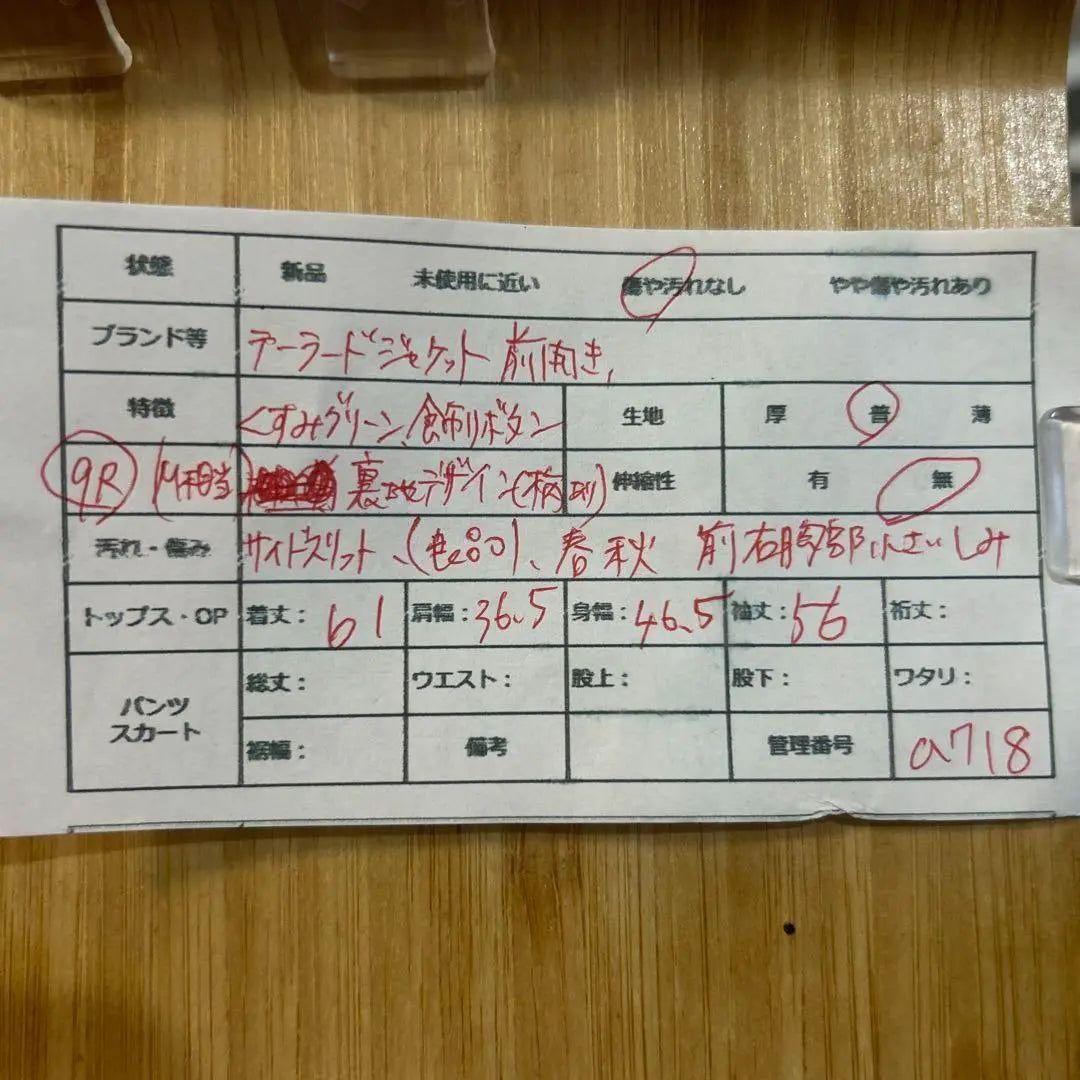 状態 新品 未使用に近い 傷や汚れなし やや傷や汚れあり
ブランド等 テーラードジャケット 前開き
特徴 くすみグリーン、飾りボタン 生地 厚 普 薄
9R (M相当) 裏地デザイン(柄 伸縮性 有 無
汚れ・傷み サイドスリット、 春秋 前右胸部小さいしみ
トップス・OP 着丈: 61 肩幅: 36.5 身幅: 46.5 袖丈: 56 裄丈:
パンツ スカート 総丈: ウエスト: 股上: 股下: ワタリ:
裾幅: 備考 管理番号 a718